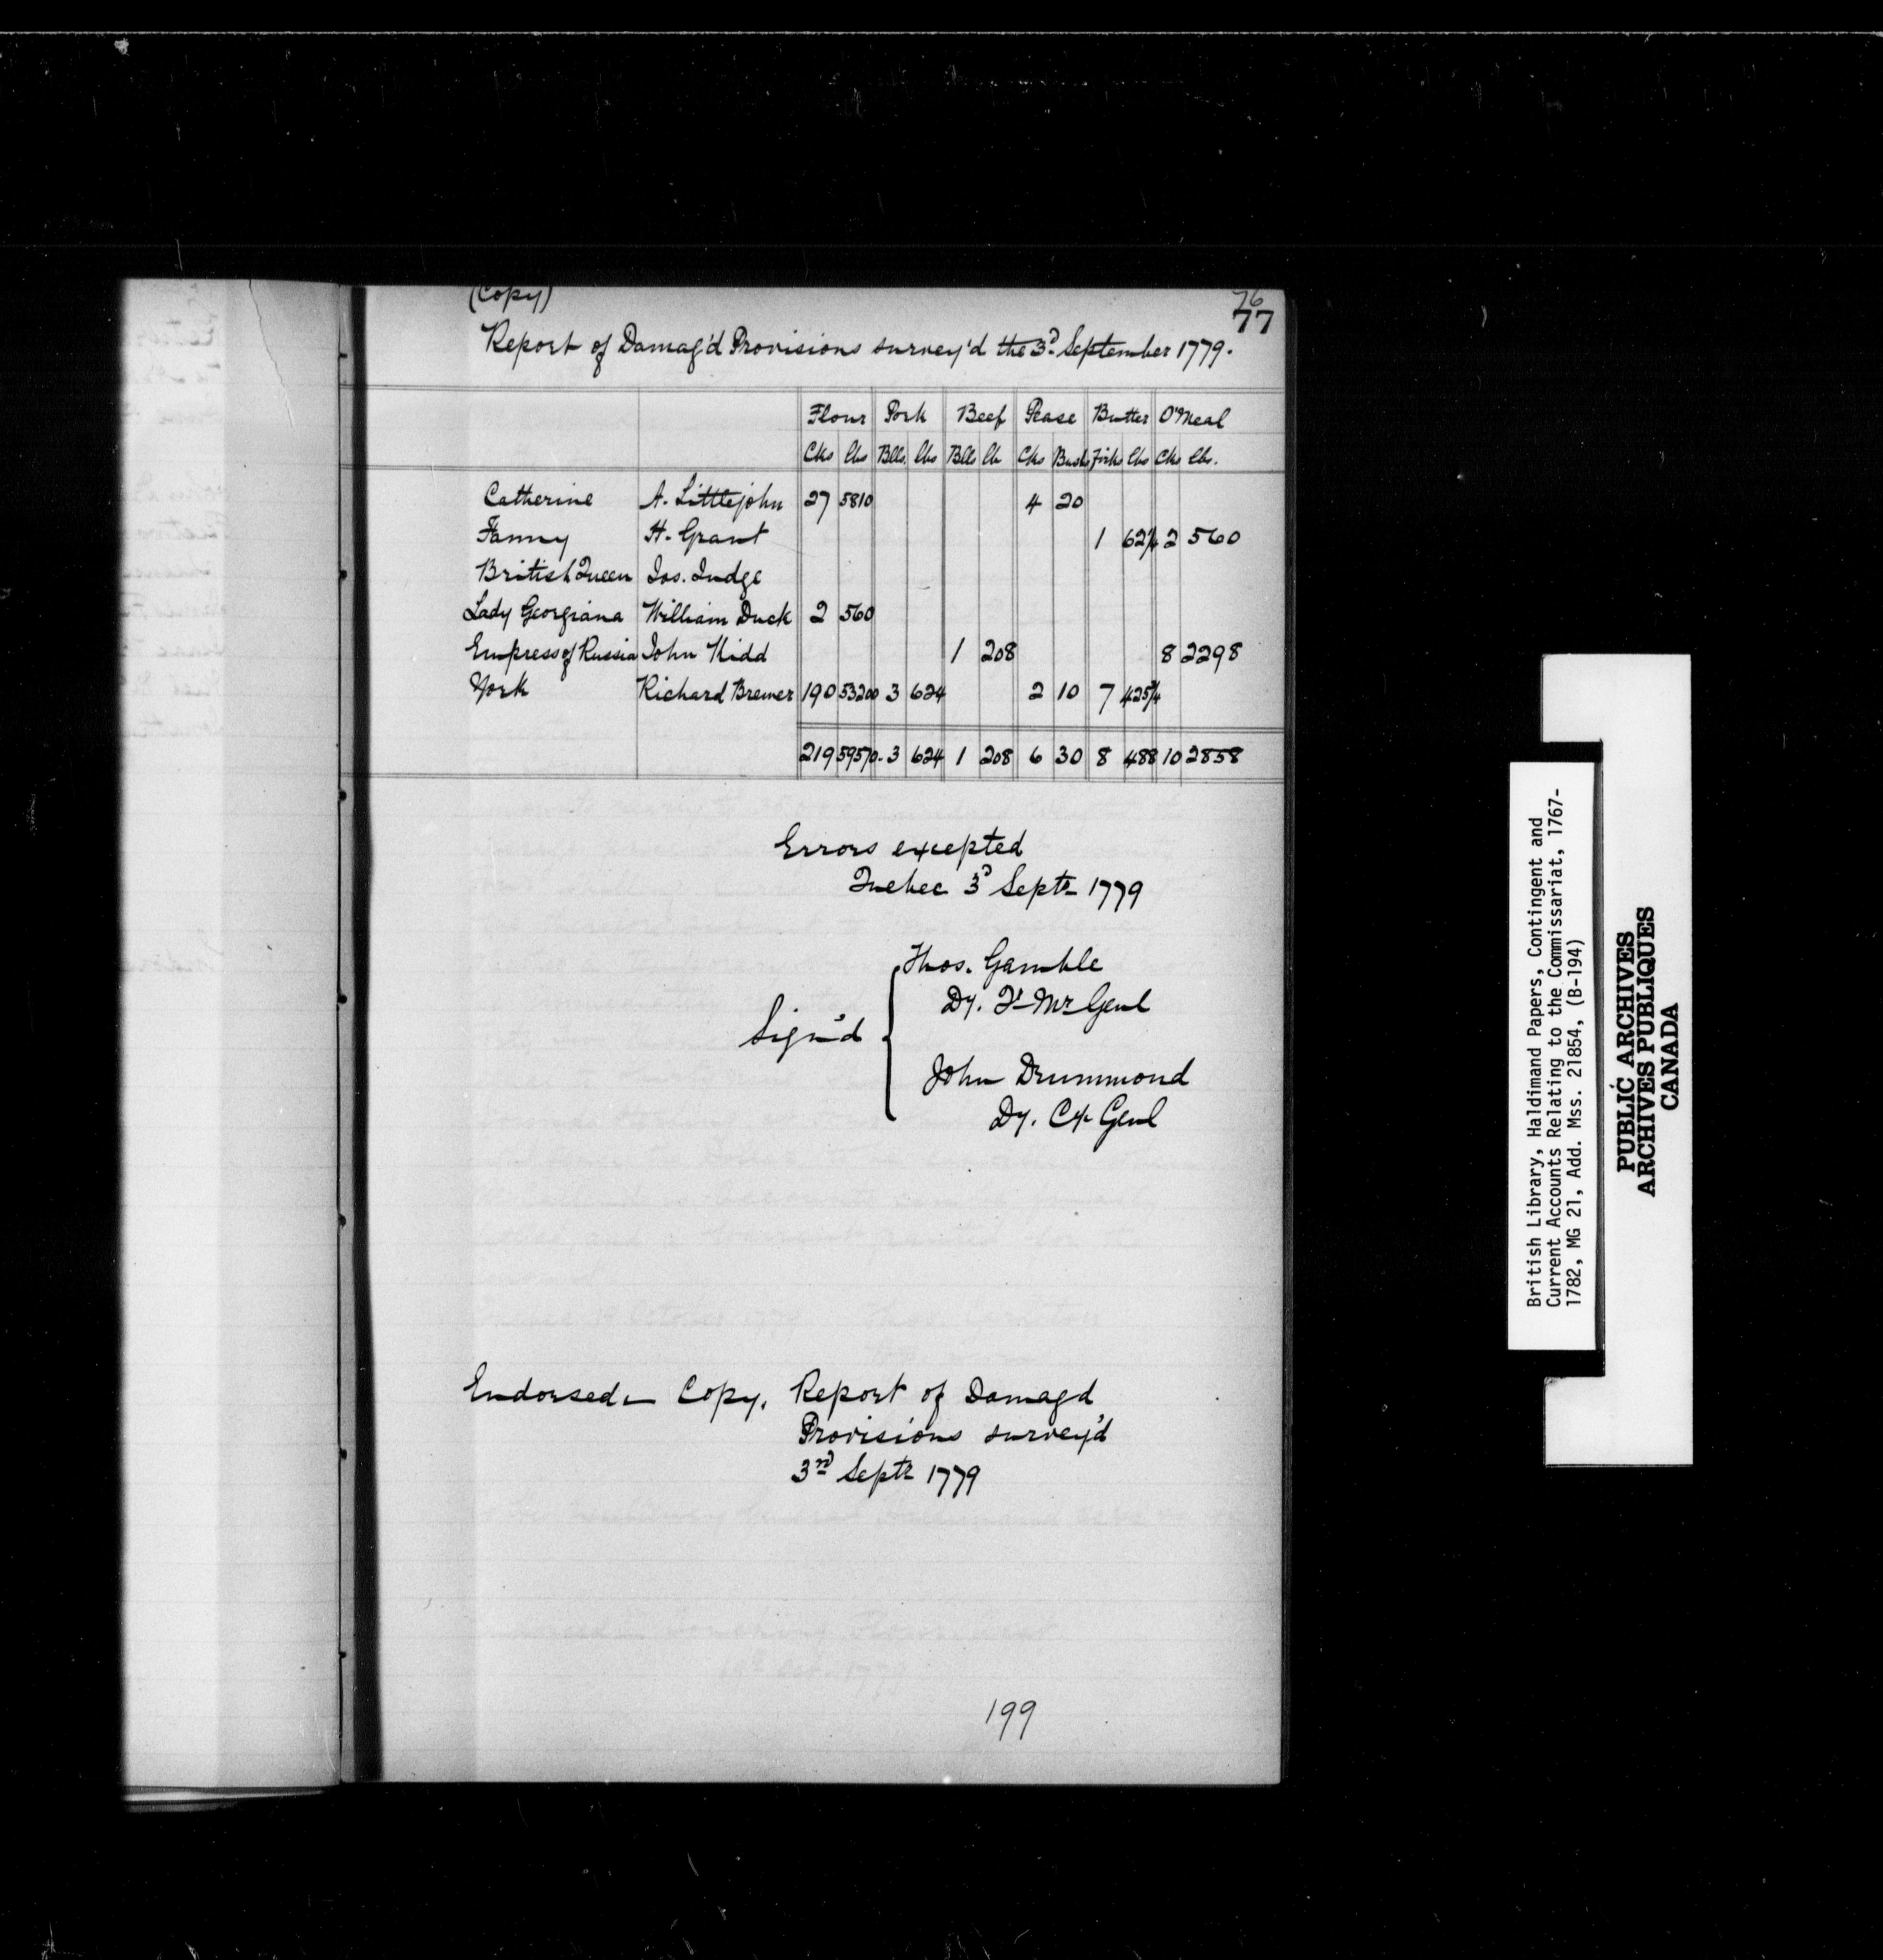 (Copy)
76
77
Report of Damag'd Provisions survey'd the 3d September 1779.
Flour Pork Beef Pease Butter O'Meal
Cks lbs Blls. lbs Blls lb Cks Bush Firks lbs Cks lbs.
Catherine A. Littlejohn 27 5810 4 20
Fanny H. Grant 1 62 1/4 2 560
British Queen Jos. Judge
Lady Georgiana William Duck 2 560
Empress of Russia John Kidd 1 208 8 2298
York Richard Brewer 190 53200 3 624 2 10 7 425 3/4
219 59570. 3 624 1 208 6 30 8 488 10 2858
Errors excepted
Quebec 3d Septr 1779
Thos. Gamble
Dy. Qr Mr Genl
Sign'd
John Drummond
Dy. Cy Genl
Endorsed - Copy. Report of Damag'd
Provisions survey'd
3rd Septr 1779
199
British Library, Haldimand Papers, Contingent and
Current Accounts Relating to the Commissariat, 1767-
1782, MG 21, Add. Mss. 21854, (B-194)
PUBLIC ARCHIVES
ARCHIVES PUBLIQUES
CANADA